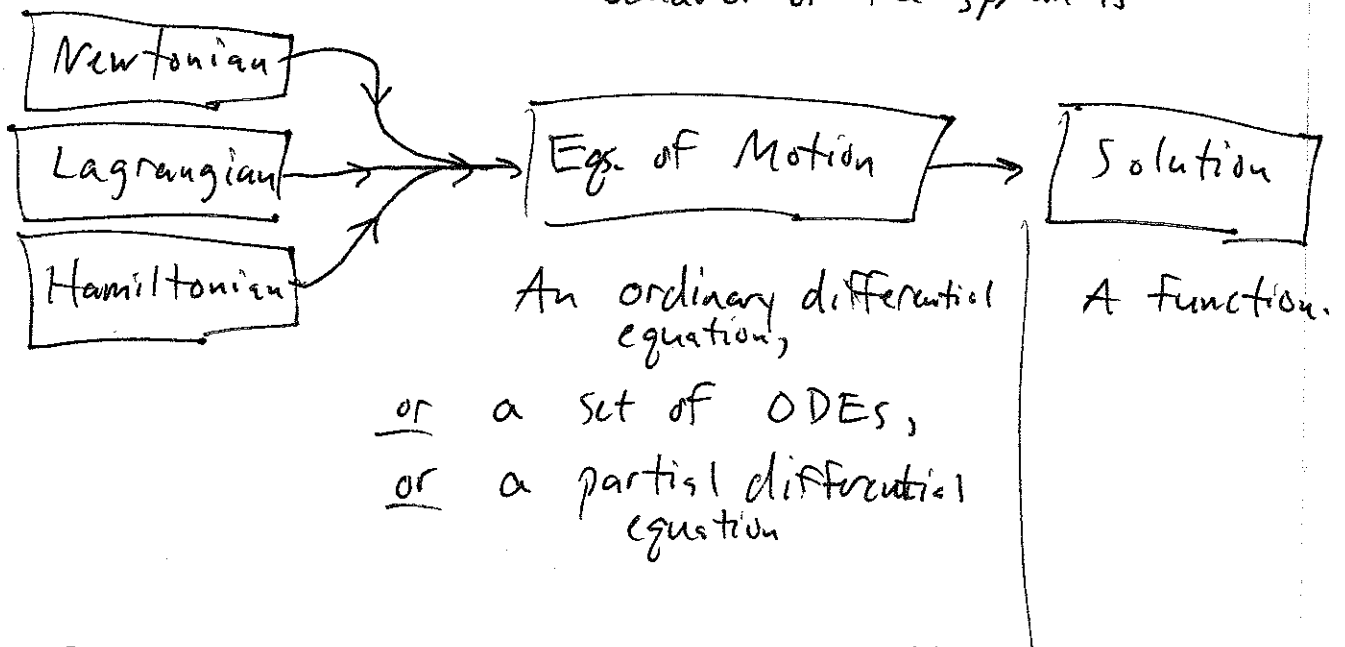 behavior of the system is
Newtonian
Lagrangian
Hamiltonian
Eqs. of Motion
Solution
An ordinary differential
equation,
or a set of ODEs,
or a partial differential
equation
A function.